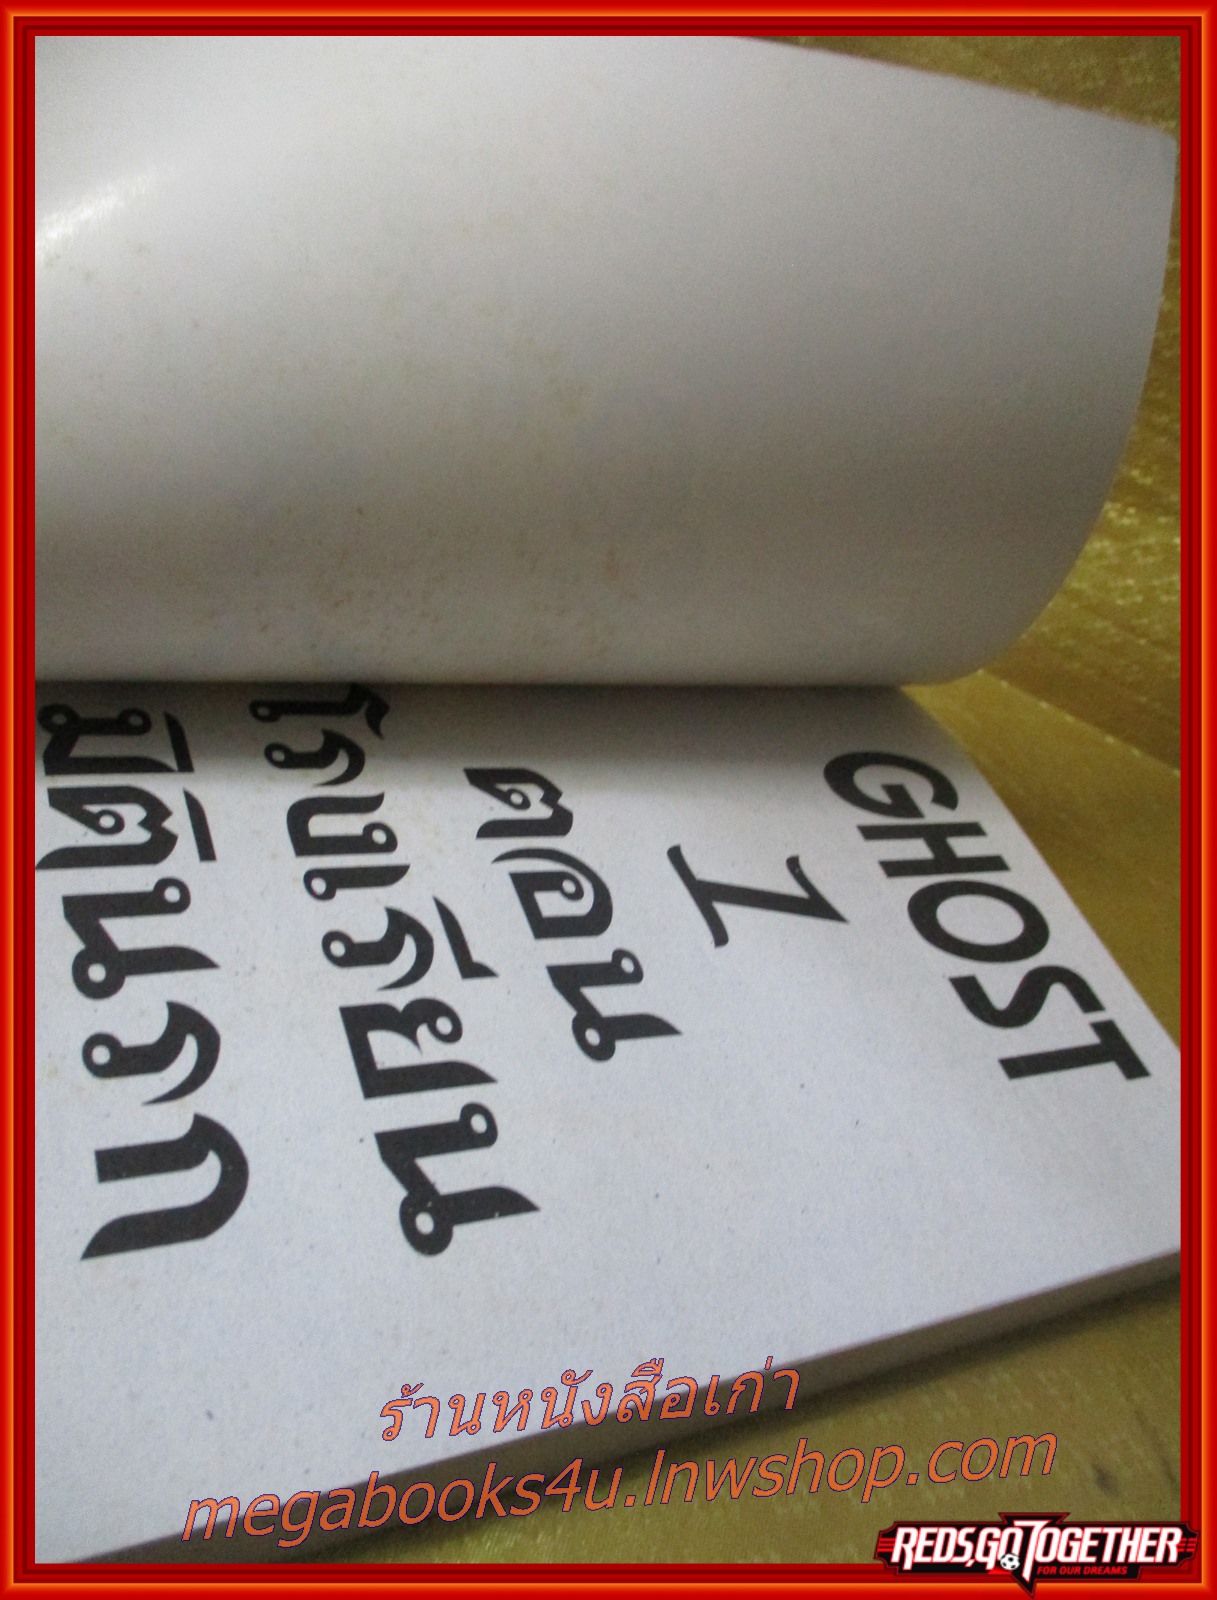 GHOST
1
ตอน
โรงเรียน
มิตินรก
ร้านหนังสือเก่า
megabooks4u.lnwshop.com
REDS,GO TOGETHER
FOR OUR DREAMS